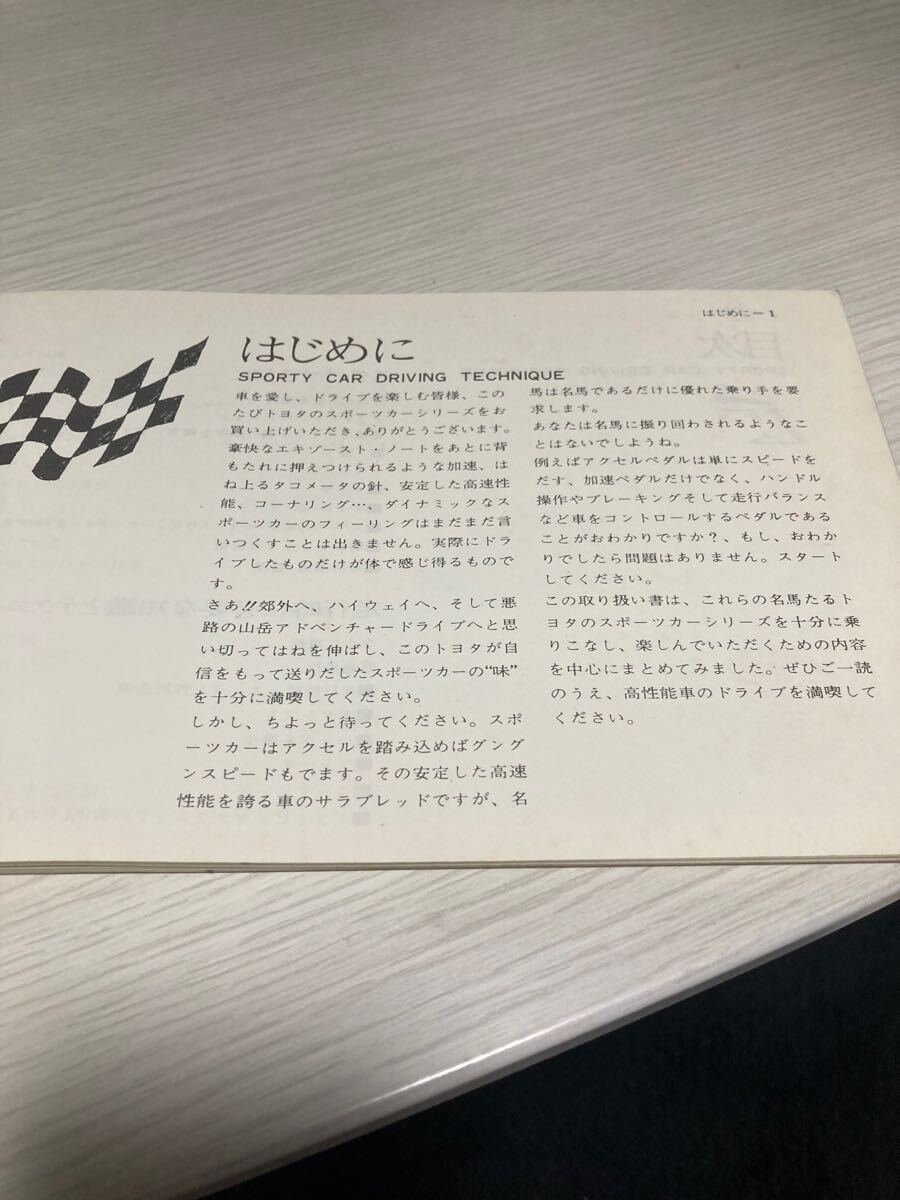 はじめに－1
はじめに
SPORTY CAR DRIVING TECHNIQUE
車を愛し、ドライブを楽しむ皆様、この
たびトヨタのスポーツカーシリーズをお
買い上げいただき、ありがとうございます。
豪快なエキゾースト・ノートをあとに背
もたれに押えつけられるような加速、は
ね上るタコメータの針、安定した高速性
能、コーナリング…、ダイナミックなス
ポーツカーのフィーリングはまだまだ言
いつくすことは出きません。実際にドラ
イブしたものだけが体で感じ得るもので
す。
さあ!!郊外へ、ハイウェイへ、そして悪
路の山岳アドベンチャードライブへと思
い切ってはねを伸ばし、このトヨタが自
信をもって送りだしたスポーツカーの“味”
を十分に満喫してください。
しかし、ちよっと待ってください。スポ
ーツカーはアクセルを踏み込めばグング
ンスピードもでます。その安定した高速
性能を誇る車のサラブレッドですが、名
馬は名馬であるだけに優れた乗り手を要
求します。
あなたは名馬に振り回わされるようなこ
とはないでしようね。
例えばアクセルペダルは単にスピードを
だす、加速ペダルだけでなく、ハンドル
操作やブレーキングそして走行バランス
など車をコントロールするペダルである
ことがおわかりですか？、もし、おわか
りでしたら問題はありません。スタート
してください。
この取り扱い書は、これらの名馬たるト
ヨタのスポーツカーシリーズを十分に乗
りこなし、楽しんでいただくための内容
を中心にまとめてみました。ぜひご一読
のうえ、高性能車のドライブを満喫して
ください。